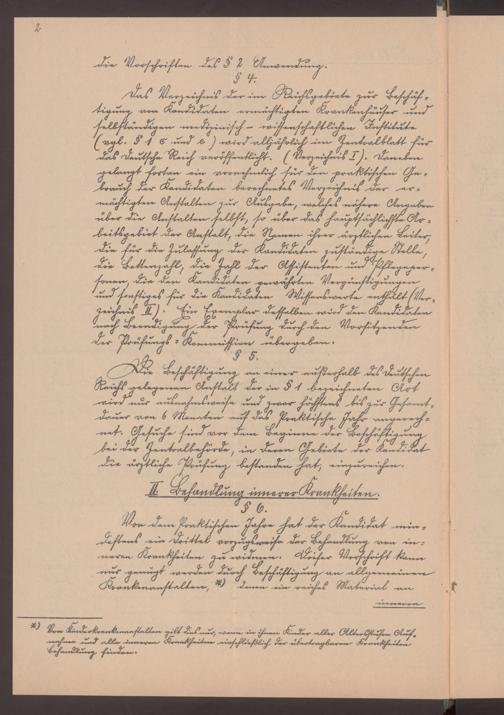 2
die Vorschriften des § 2 Anwendung.
§ 4.
Das Verzeichnis der im Reichsgebiete zur Beschäf-
tigung von Kandidaten ermächtigten Krankenhäuser und
selbständigen medizinisch-wissenschaftlichen Institute
(vgl. § 1 c und e) wird alljährlich im Zentralblatt für
das Deutsche Reich veröffentlicht. (Verzeichnis I). Daneben
gelangt fortan ein vornehmlich für den praktischen Ge-
brauch der Kandidaten berechnetes Verzeichnis der er-
mächtigten Anstalten zur Ausgabe, welches nähere Angaben
über die Anstalten selbst, so über das hauptsächlichste Ar-
beitsgebiet der Anstalt, die Namen ihrer ärztlichen Leiter,
die für die Zulassung der Kandidaten zuständige Stelle,
die Bettenzahl, die Zahl der Assistenten und Pflegeper-
sonen, die den Kandidaten gewährten Vergünstigungen
und sonstiges für die Kandidaten Wissenswerte enthält (Ver-
zeichnis II). Ein Exemplar desselben wird den Kandidaten
nach Beendigung der Prüfung durch den Vorsitzenden
der Prüfungs-Kommission übergeben.
§ 5.
Die Beschäftigung an einer außerhalb des Deutschen
Reichs gelegenen Anstalt der in § 1 bezeichneten Art
wird nur ausnahmsweise und zwar höchstens bis zur Gesamt-
dauer von 6 Monaten auf das Praktische Jahr angerech-
net. Gesuche sind vor dem Beginne der Beschäftigung
bei der Zentralbehörde, in deren Gebiete der Kandidat
die ärztliche Prüfung bestanden hat, einzureichen.
II. Behandlung innerer Krankheiten.
§ 6.
Von dem Praktischen Jahre hat der Kandidat min-
destens ein Drittel vorzugsweise der Behandlung von in-
neren Krankheiten zu widmen. Dieser Vorschrift kann
nur genügt werden durch Beschäftigung an allgemeinen
Krankenanstalten, *) denen ein reiches Material an
inneren
*) Von Kinderkrankenanstalten gilt dies nur, wenn in ihnen Kinder aller Altersstufen Auf-
nahme und alle inneren Krankheiten einschließlich der übertragbaren Krankheiten
Behandlung finden.